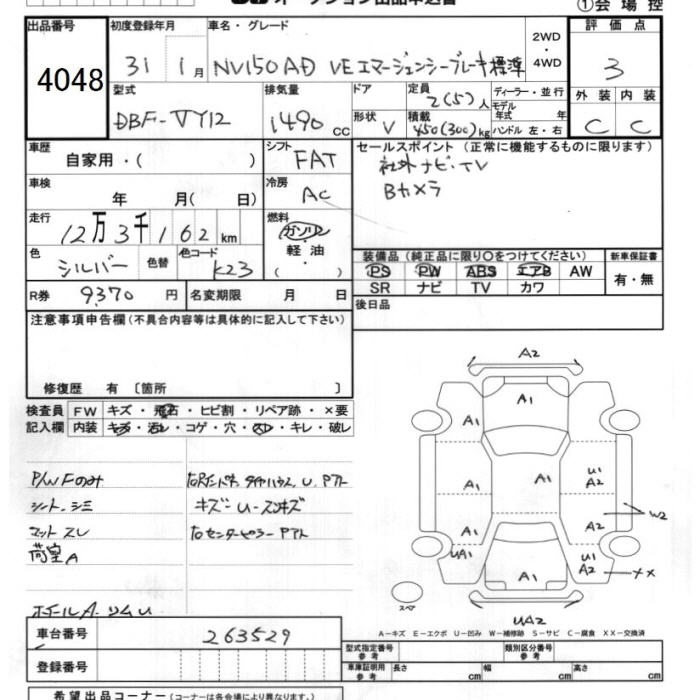 ①会場控
出品番号
4048
初度登録年月
31 1月
車名・グレード
NV150AD VEエマージェンシーブレーキ標準
2WD
・
4WD
評価点
3
外装 内装
C C
型式
DBF-VY12
排気量
1490 cc
ドア
形状 V
定員 2(5)人
積載 450(300)kg
ディーラー・並行
モデル
年式 年
ハンドル 左・右
車歴
自家用・( )
シフト
FAT
セールスポイント(正常に機能するものに限ります)
社外ナビ・TV
Bカメラ
車検
年 月( 日)
冷房
AC
走行
12万3千162km
燃料
ガソリン
軽油
( ・ )
色
シルバー
色替
色コード
K23
装備品(純正品に限り○をつけてください)
PS PW ABS エアB AW
SR ナビ TV カワ
新車保証書
有・無
R券 9370円
名変期限 月 日
後日品
注意事項申告欄(不具合内容等は具体的に記入して下さい)
修復歴 有 〔箇所 〕
検査員
記入欄
FW キズ・飛石・ヒビ割・リペア跡・×要
内装 キズ・汚レ・コゲ・穴・スレ・キレ・破レ
P/W Fのみ
シート シミ
マット スレ
荷室A
ホイールA リムU
キズーU-スリキズ
右センターピラー Pアト
A2
A1
A1
A1
A1
U1
A2
W2
A2
UA1
A1
U1
A2
××
スペア
UA2
A-キズ E-エクボ U-凹み W-補修跡 S-サビ C-腐食 XX-交換済
車台番号 263529
登録番号
型式指定番号
参考
類別区分番号
参考
車庫証明用
参考
長さ cm 幅 cm 高さ cm
希望出品コーナー(コーナーは各会場により異なります。)